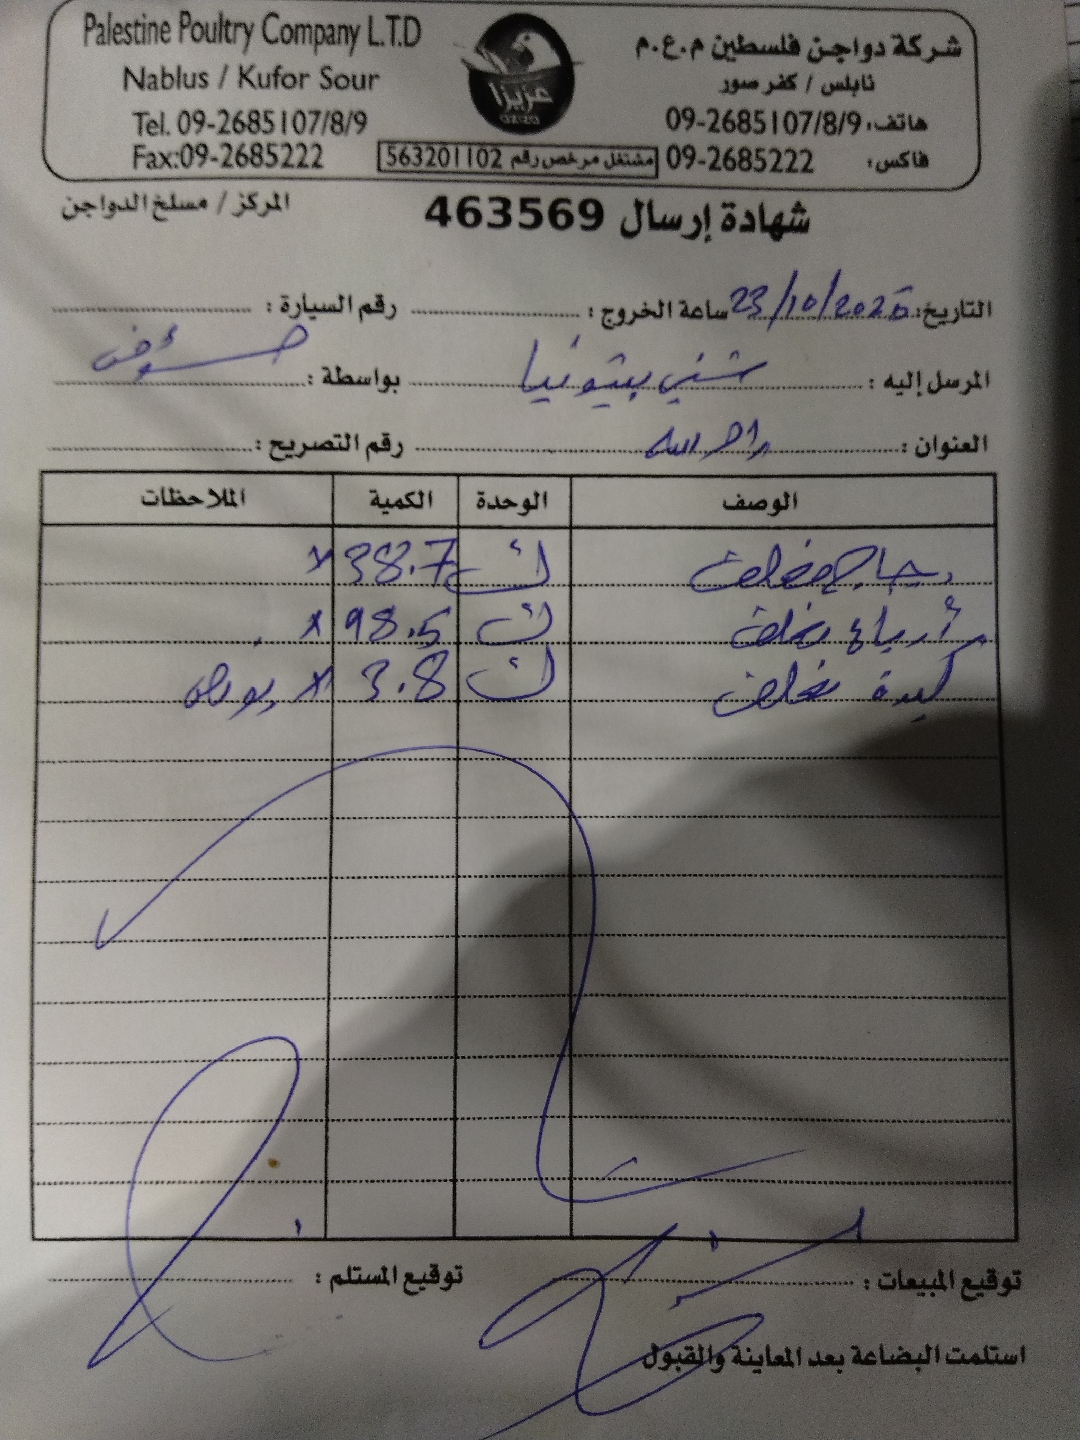 Palestine Poultry Company L.T.D
Nablus / Kufor Sour
Tel. 09-2685107/8/9
Fax:09-2685222
عزيزا
شركة دواجن فلسطين م.ع.م
نابلس / كفر صور
هاتف: 09-2685107/8/9
فاكس: 09-2685222
مشتغل مرخص رقم 563201102
شهادة إرسال 463569
المركز / مسلخ الدواجن
التاريخ: 23/10/2025 ساعة الخروج : رقم السيارة :
المرسل إليه : بيتونيا بواسطة :
العنوان : رام الله رقم التصريح :
الوصف الوحدة الكمية الملاحظات
دجاج مغلف ك 38.7 x
أرباع مغلف ك 98.5 x
كبدة مغلف ك 3.8 x
توقيع المبيعات : توقيع المستلم :
استلمت البضاعة بعد المعاينة والقبول